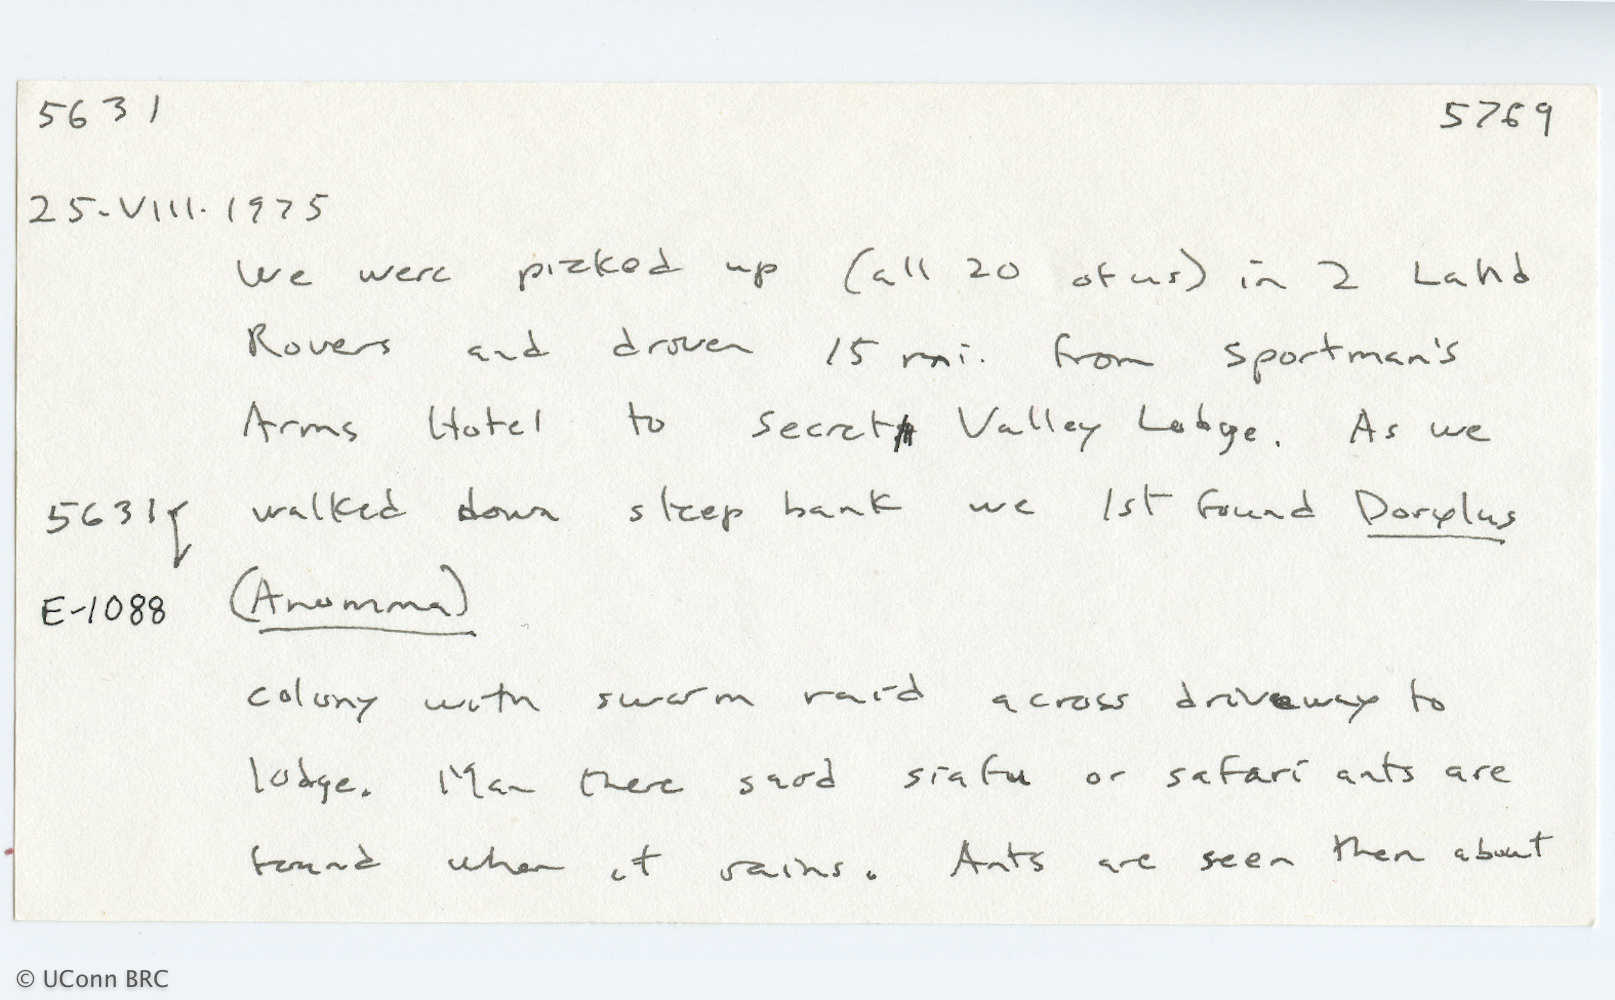 5631 5769
25-VIII-1975
We were picked up (all 20 of us) in 2 Land
Rovers and droven 15 mi. from Sportman's
Arms Hotel to Secret Valley Lodge. As we
5631 walked down steep bank we 1st found Dorylus
E-1088 (Anomma)
colony with swarm raid across driveway to
lodge. Man there said siafu or safari ants are
found when it rains. Ants are seen then about
© UConn BRC